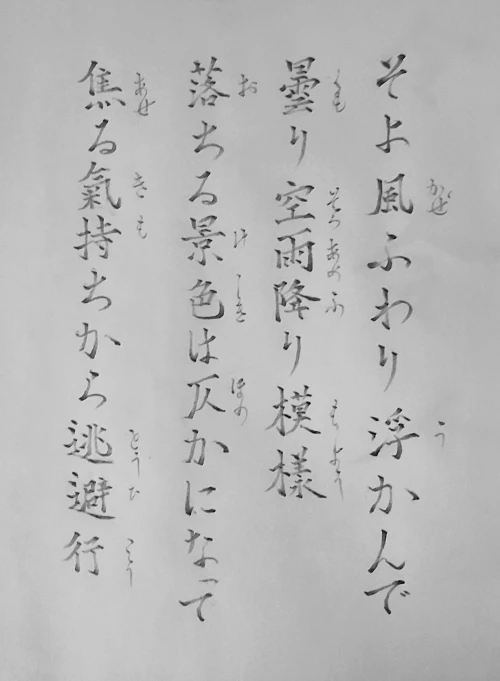 そよ風ふわり浮かんで
曇り空雨降り模様
落ちる景色は仄かになって
焦る氣持ちから逃避行
かぜ
う
くも
そら あめ ふ
もよう
お
けしき
ほの
あせ
きも
とうひ
こう